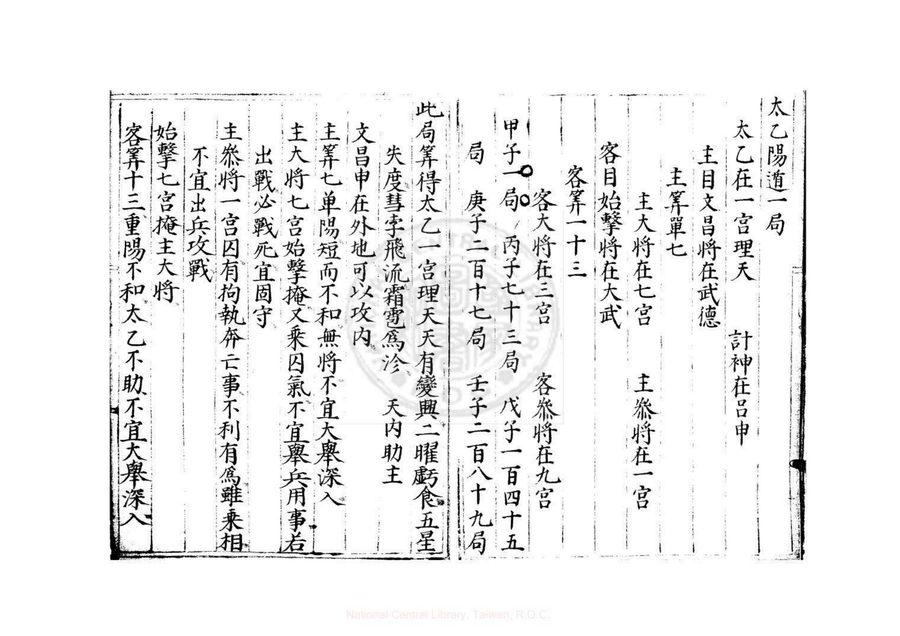 太乙陽道一局
太乙在一宮理天　計神在呂申
主目文昌將在武德
主筭單七
主大將在七宮　主叅將在一宮
客目始擊將在大武
客筭一十三
客大將在三宮　客叅將在九宮
甲子一局　丙子七十三局　戊子一百四十五
局　庚子二百十七局　壬子二百八十九局
此局筭得太乙一宮理天天有變異二曜虧食五星
失度彗孛飛流霜雹爲沴　天内助主
文昌申在外地可以攻内
主筭七单陽短而不和無將不宜大舉深入
主大將七宮始擊掩又乘囚氣不宜舉兵用事若
出戰必戰死宜固守
主叅將一宮囚有拘執奔亡事不利有爲雖乘相
不宜出兵攻戰
始擊七宮掩主大將
客筭十三重陽不和太乙不助不宜大舉深入
National Central Library, Taiwan, R.O.C.